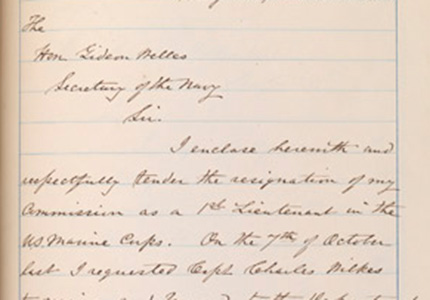 The
Hon. Gideon Welles
Secretary of the Navy
Sir.
I enclose herewith and
respectfully tender the resignation of my
Commission as a 1st Lieutenant in the
US Marine Corps. On the 7th of October
last I requested Capt Charles Wilkes